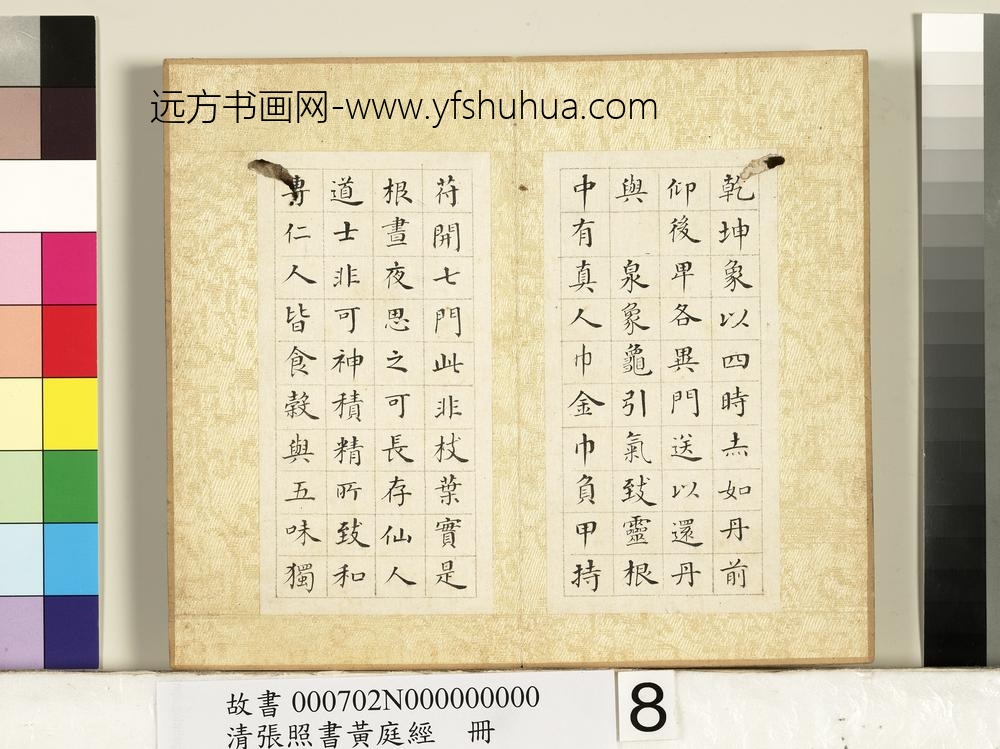 远方书画网-www.yfshuhua.com
乾坤象以四時赤如丹前
仰後卑各異門送以還丹
與泉象龜引氣致靈根
中有真人巾金巾負甲持
苻開七門此非枝葉實是
根晝夜思之可長存仙人
道士非可神積精所致和
專仁人皆食穀與五味獨
故書 000702N000000000
清張照書黃庭經 冊
8